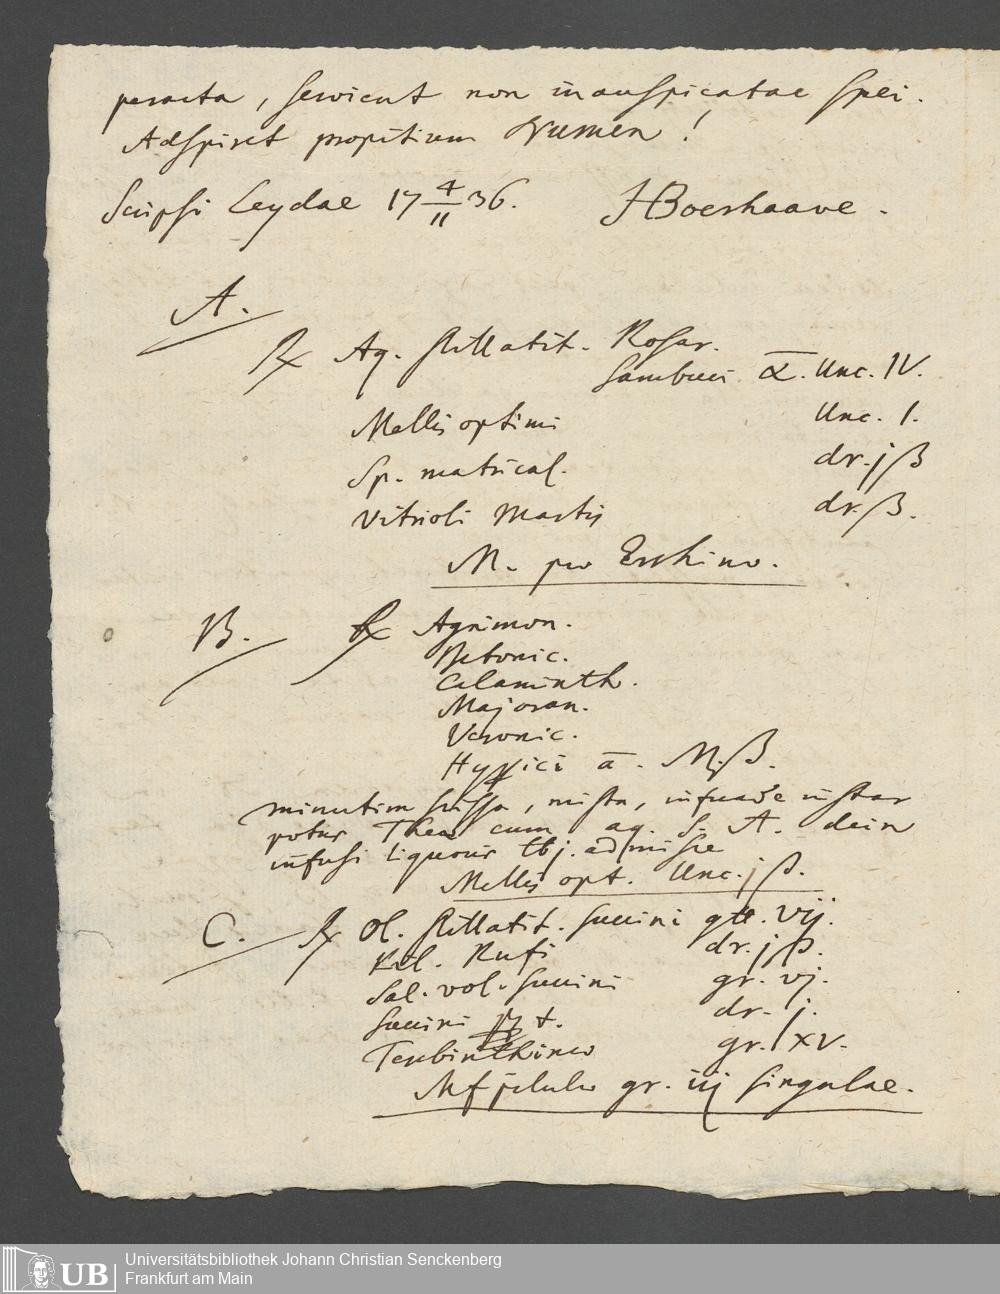 peracta, servient non inauspicatae spei.
Adspiret propitium Numen!
Scripsi Leydae 17 4/11 36. HBoerhaave.
A.
℞ Aq. stillatit. Rosar.
Sambuci ā. Unc. IV.
Mellis optimi Unc. I.
Sp. matrical. dr. jß
Vitrioli Martis dr. ß.
M. pro Errhino.
B. ℞ Agrimon.
Betonic.
Calaminth.
Majoran.
Veronic.
Hyssici ā. M. ß.
minutim scissa, mista, infunde instar
potus Thea cum aq. S. A. dein
infusi liquoris ℔j. admisce
Mellis opt. Unc. jß.
C. ℞ Ol. stillatit. Succini gtt. vij.
Pil. Rufi dr. jß.
Sal. vol. Succini gr. vj.
Succini ppt. dr. j.
Terbinthineo gr. xv.
Mf pilulae gr. iij singulae.
UB Universitätsbibliothek Johann Christian Senckenberg
Frankfurt am Main